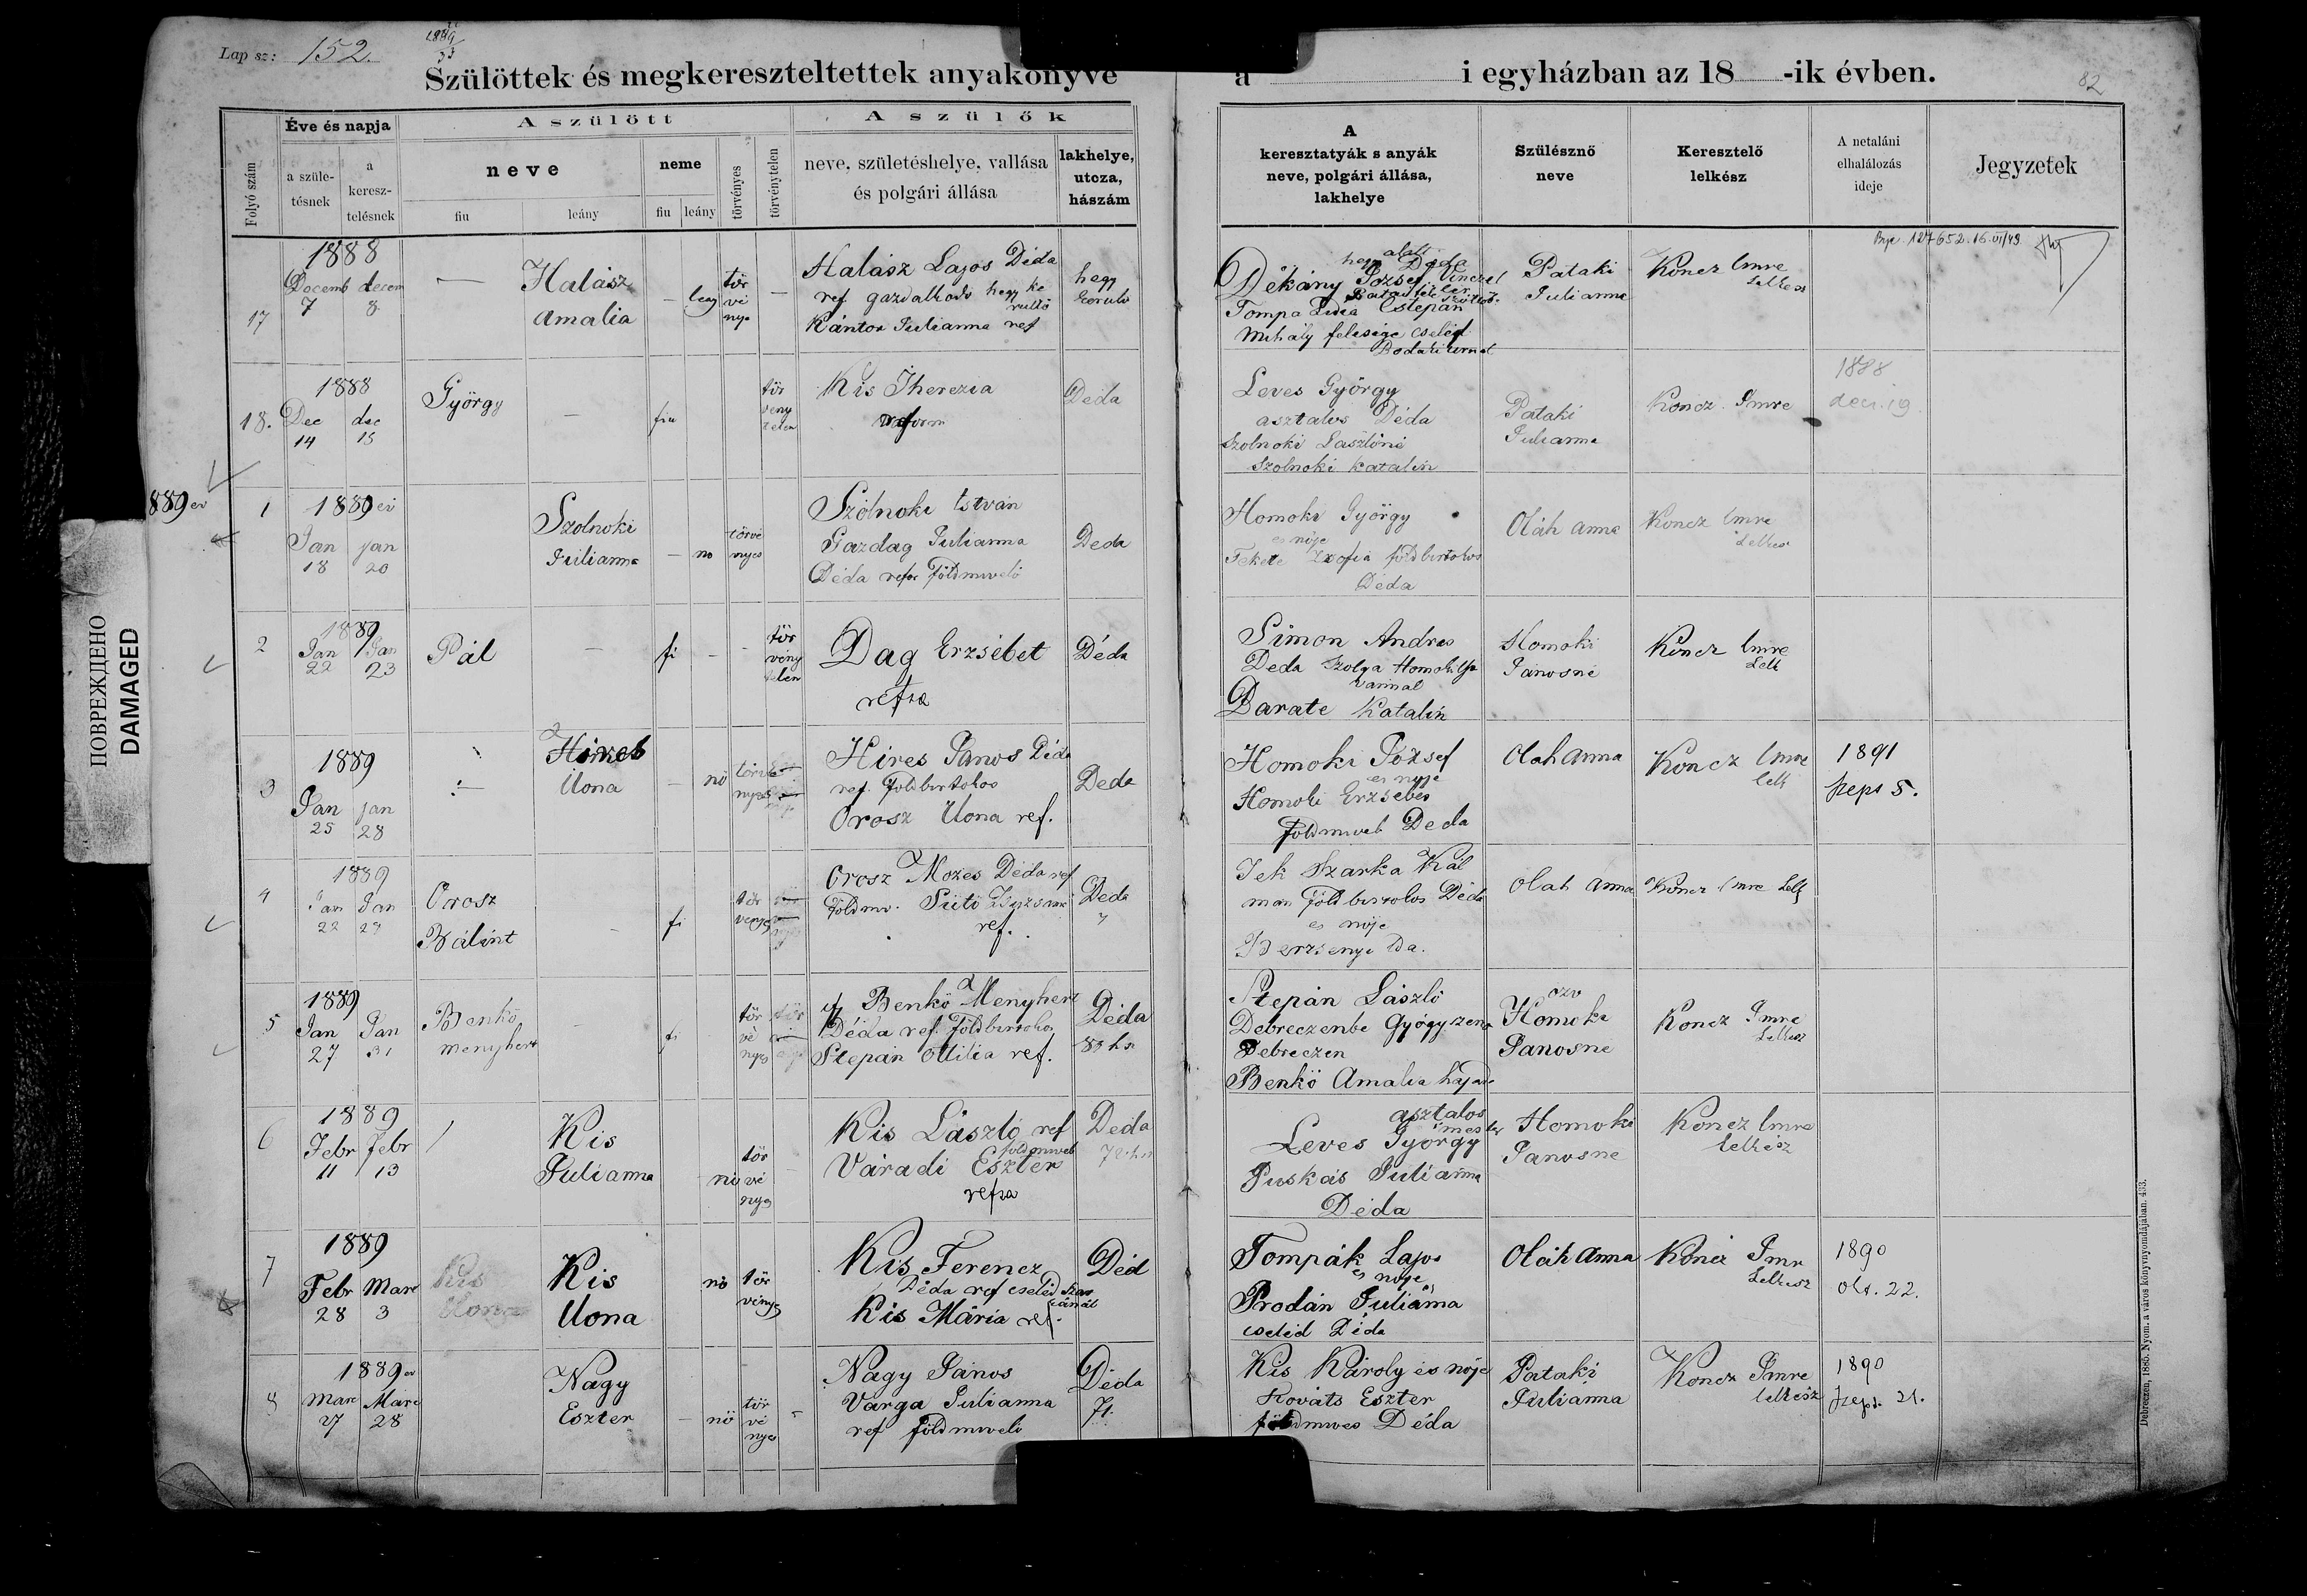 Lap sz: 152.
1889
Szülöttek és megkereszteltettek anyakönyve
a i egyházban az 18 -ik évben.
82
Folyó szám
Éve és napja
a szüle-
tésnek
a
keresz-
telésnek
A szülött
neve
fiu
leány
neme
fiu
leány
törvényes
törvénytelen
A szülők
neve, születéshelye, vallása
és polgári állása
lakhelye,
utcza,
hászám
A
keresztatyák s anyák
neve, polgári állása,
lakhelye
Szülésznő
neve
Keresztelő
lelkész
A netaláni
elhalálozás
ideje
Jegyzetek
17
1888
Decemb decem
7 8
Halász
Amalia
leg
tör
vé
nye
Halász Lajos Déda
ref gazdalkodo hegy ke
rullö
Kántor Julianna ref
hegy
Dékány József
Tompa Lidia Estepán
Mihály felesége cseléd
Pataki
Julianna
Koncz Imre
lelkesz
127652.16.VI/49
18.
1888
Dec dec
14 15
György
fiu
tör
veny
telen
Kis Therezia
reform
Déda
Leves György
asztalos Déda
Szolnoki Laszlóné
Szolnoki Katalin
Pataki
Julianna
Koncz Imre
1888
dec. 19
889 ev
1
1889 év
Jan jan
18 20
Szolnoki
Julianna
no
törvé
nyes
Szolnoki István
Gazdag Julianna
Déda refor földmuvelö
Deda
Homoki György
es nöje
Fekete Zsofia földbirtokos
Déda
Oláh Anna
Koncz Imre
Lelkes
2
1889
Jan Jan
22 23
Pál
fi
tör
vény
telen
Dag Erzsébet
refra
Déda
Simon Andras
Deda Szolga
Darate Katalin
Homoki
Janosné
Koncz Imre
Lelk
3
1889
Jan jan
25 28
Hires
Ilona
nö
törvé
nyes
Hires Janos Déda
ref. földbirtokos
Orosz Ilona ref.
Deda
Homoki József
es nyje
Homoki Erzsebet
földmuveb Deda
Olah Anna
Koncz Imre
lelk
1891
szept 5.
4
1889
Jan Jan
22 27
Orosz
Bálint
fi
tör
venyes
Orosz Mozes Déda ref
földmv. Sütö
ref.
Deda
Jek Szarka Kál
man földbirtokos Déda
es nöje
Berzsenyi Ida.
Olah Anna
Koncz Imre Lelk
5
1889
Jan Jan
27 31
Benkö
Menyhert
fi
tör
vé
nyes
ifj Benkö Menyhert
Déda ref. földbirtokos
Stepán Ottilia ref.
Déda
Stepán László
Debreczenbe Gyógyszerz
Debreczen
Benkö Amalia hajad
özv
Homoki
Janosne
Koncz Imre
Lelkesz
6
1889
Febr febr
11 13
Kis
Julianna
nö
tör
vé
nyes
Kis László ref
földmuveb
Váradi Eszter
refra
Deda
asztalos
mester
Leves György
Puskás Julianna
Déda
Homoki
Janosne
Koncz Imre
lelkész
7
1889
Febr Marc
28 3
Kis
Ilona
Kis
Ilona
nö
tör
vényes
Kis Ferencz
Déda ref cseléd
Kis Mária ref.
Déd
Tompák Lajos
es nöje
Prodán Julianna
cseléd Déda
Oláh Anna
Koncz Imr
Lelkesz
1890
Okt. 22.
8
1889 ev
Marc Marc
27 28
Nagy
Eszter
nö
tör
vé
nyes
Nagy János
Varga Julianna
ref földmuvelö
Déda
71
Kis Károly és nöje
Kováts Eszter
földmives Déda
Pataki
Julianna
Koncz Imre
lelkész
1890
szept. 21.
ПОВРЕЖДЕНО
DAMAGED
Debreczen, 1885. Nyom. a város könyvnyomdájában. 433.